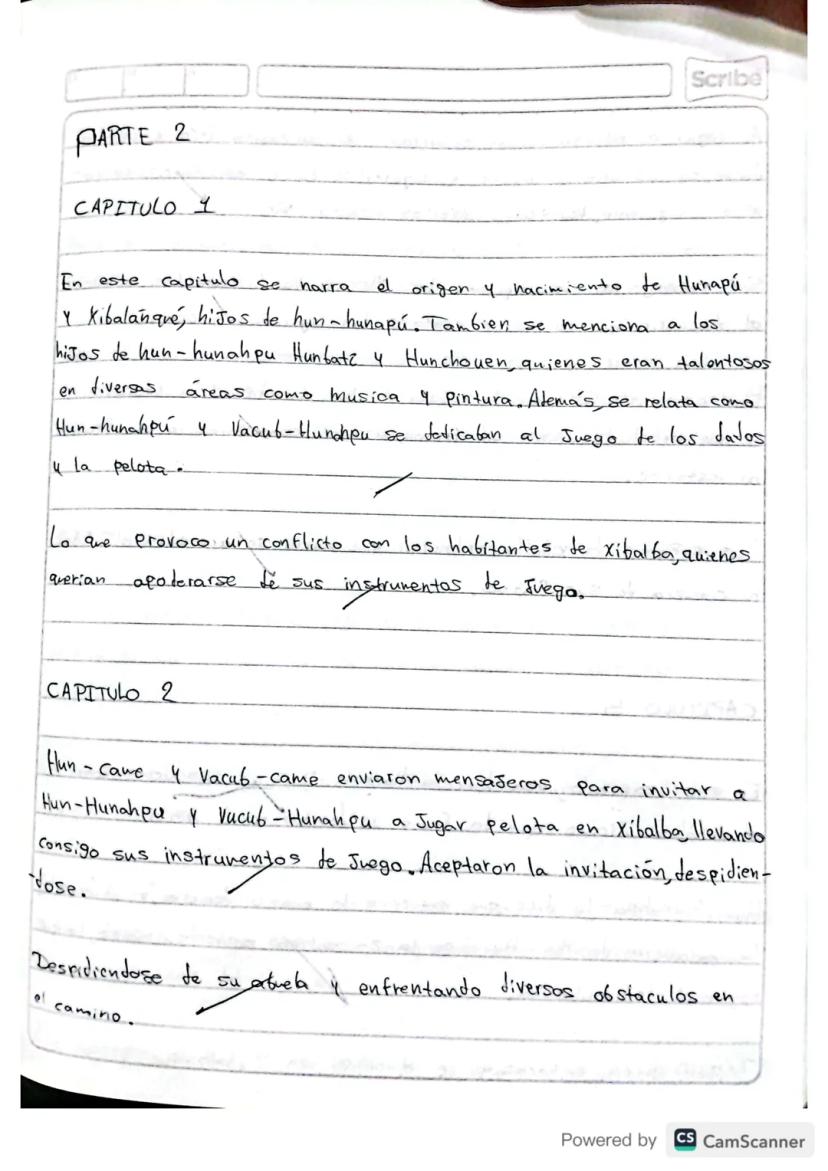 Scribe
PARTE 2
CAPITULO 1
En este capitulo se narra el origen y nacimiento de Hunapú
y Xibalanqué, hijos de hun-hunapú. Tambien se menciona a los
hijos de hun-hunahpu Hunbatz y Hunchouen, quienes eran talentosos
en diversas áreas como musica y pintura. Además, se relata como
Hun-hunahpú y Vacub-Hunahpu se dedicaban al Juego de los dados
y la pelota.
Lo que provoco un conflicto con los habitantes de xibalba, quienes
querian apoderarse de sus instrumentos de Juego.
CAPITULO 2
Hun-came y Vacub-came enviaron mensajeros para invitar a
Hun-Hunahpu y Vucub-Hunahpu a Jugar pelota en Xibalba, llevando
consigo sus instrumentos de Juego. Aceptaron la invitación, despidien-
dose.
Despidiendose de su abuela y enfrentando diversos obstaculos en
el camino.
Powered by CS CamScanner